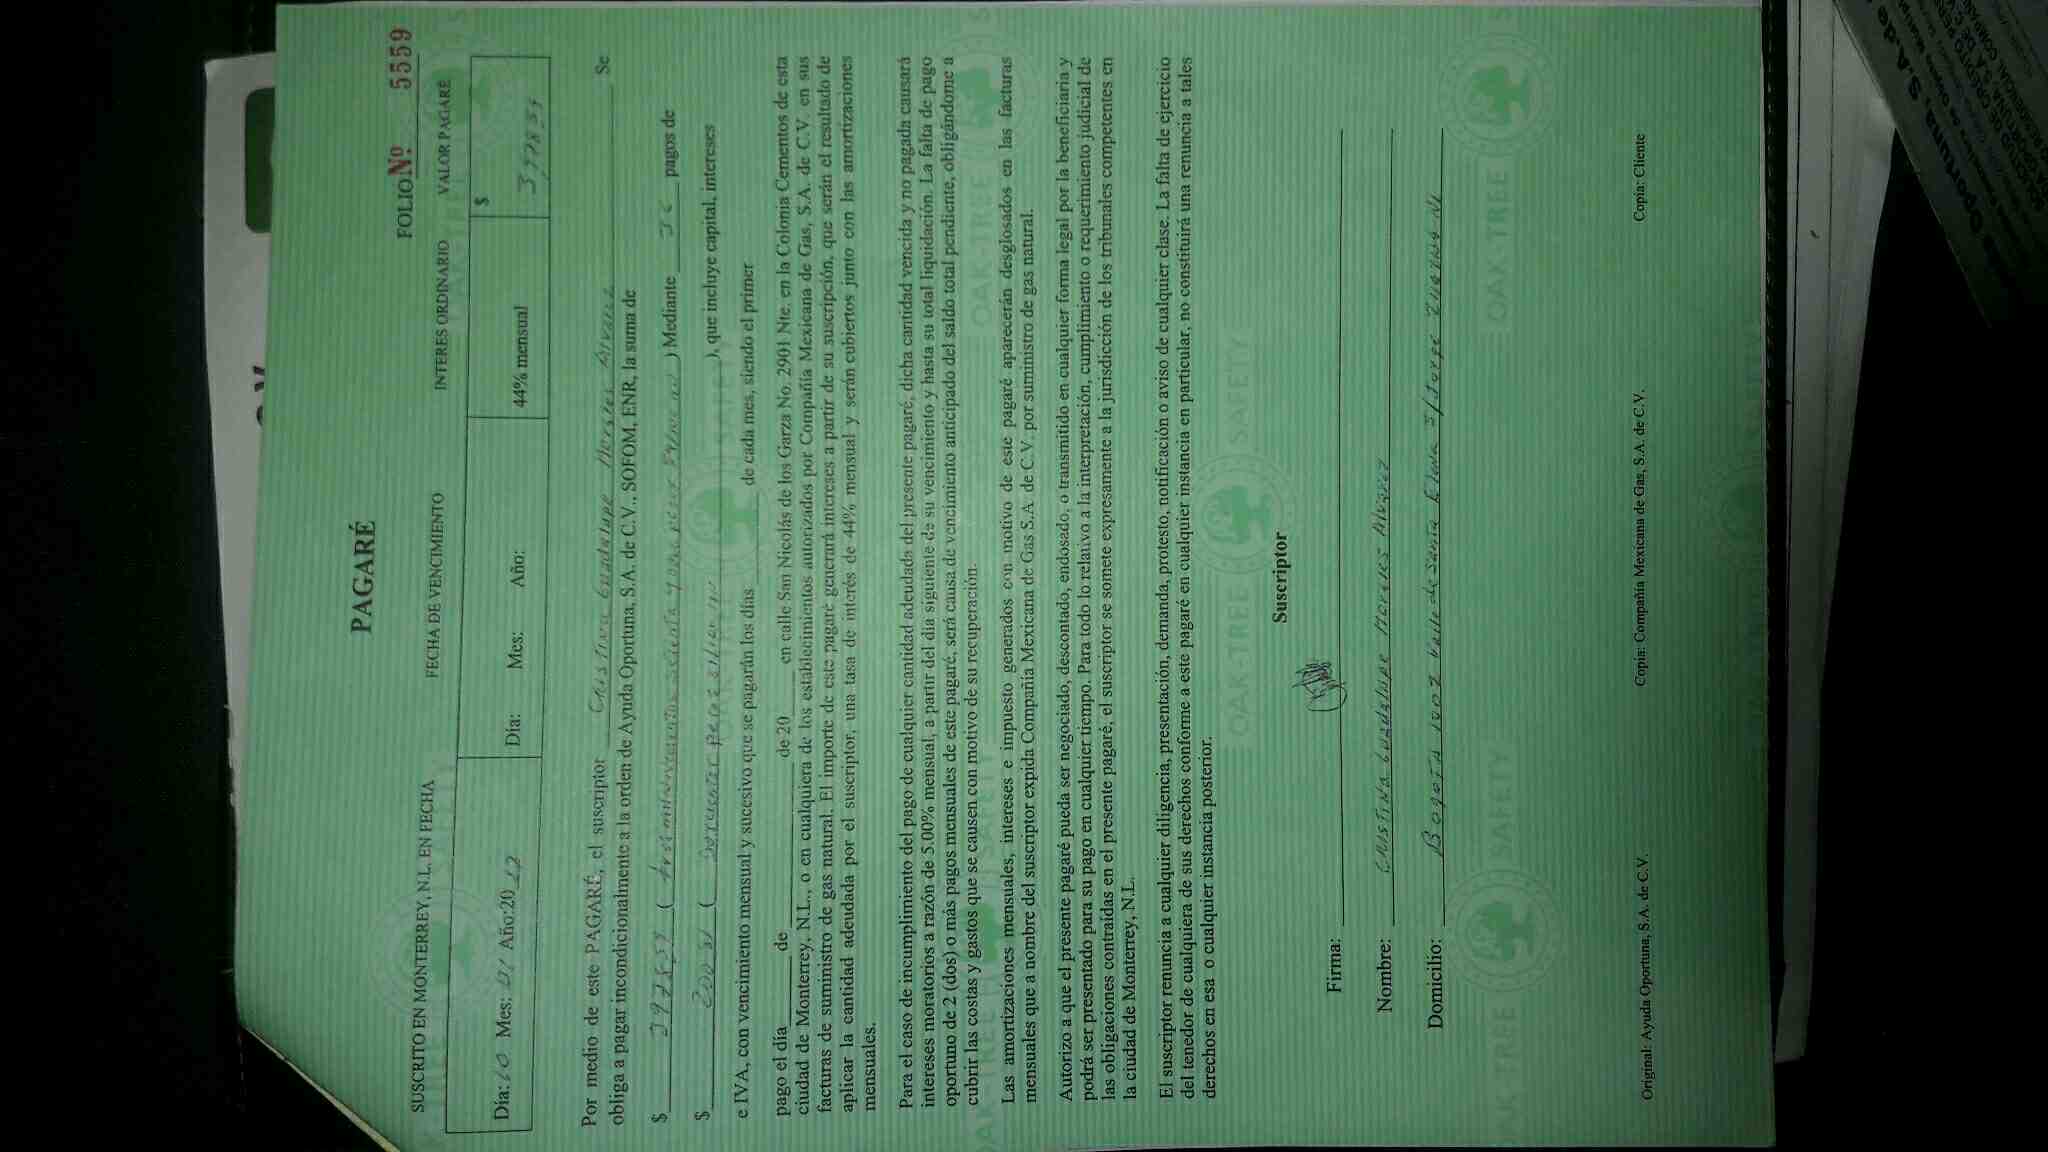 PAGARÉ
FOLIO Nº 5559
SUSCRITO EN MONTERREY, N.L. EN FECHA FECHA DE VENCIMIENTO INTERES ORDINARIO VALOR PAGARÉ
Día: 10 Mes: 01 Año:20 Día: Mes: Año: 44% mensual $
Por medio de este PAGARÉ, el suscriptor Cristina Guadalupe Morales Alvarez Se
obliga a pagar incondicionalmente a la orden de Ayuda Oportuna, S.A. de C.V., SOFOM, ENR, la suma de
$ ( pesos ) Mediante 36 pagos de
$ ( pesos ), que incluye capital, intereses
e IVA, con vencimiento mensual y sucesivo que se pagarán los días de cada mes, siendo el primer
pago el día de de 20 en calle San Nicolás de los Garza No. 2901 Nte. en la Colonia Cementos de esta
ciudad de Monterrey, N.L., o en cualquiera de los establecimientos autorizados por Compañía Mexicana de Gas, S.A. de C.V. en sus
facturas de suministro de gas natural. El importe de este pagaré generará intereses a partir de su suscripción, que serán el resultado de
aplicar la cantidad adeudada por el suscriptor, una tasa de interés de 44% mensual y serán cubiertos junto con las amortizaciones
mensuales.
Para el caso de incumplimiento del pago de cualquier cantidad adeudada del presente pagaré, dicha cantidad vencida y no pagada causará
intereses moratorios a razón de 5.00% mensual, a partir del día siguiente de su vencimiento y hasta su total liquidación. La falta de pago
oportuno de 2 (dos) o más pagos mensuales de este pagaré, será causa de vencimiento anticipado del saldo total pendiente, obligándome a
cubrir las costas y gastos que se causen con motivo de su recuperación.
Las amortizaciones mensuales, intereses e impuesto generados con motivo de este pagaré aparecerán desglosados en las facturas
mensuales que a nombre del suscriptor expida Compañía Mexicana de Gas S.A. de C.V. por suministro de gas natural.
Autorizo a que el presente pagaré pueda ser negociado, descontado, endosado, o transmitido en cualquier forma legal por la beneficiaria y
podrá ser presentado para su pago en cualquier tiempo. Para todo lo relativo a la interpretación, cumplimiento o requerimiento judicial de
las obligaciones contraídas en el presente pagaré, el suscriptor se somete expresamente a la jurisdicción de los tribunales competentes en
la ciudad de Monterrey, N.L.
El suscriptor renuncia a cualquier diligencia, presentación, demanda, protesto, notificación o aviso de cualquier clase. La falta de ejercicio
del tenedor de cualquiera de sus derechos conforme a este pagaré en cualquier instancia en particular, no constituirá una renuncia a tales
derechos en esa o cualquier instancia posterior.
Suscriptor
Firma:
Nombre: Cristina Guadalupe Morales Alvarez
Domicilio: Bogota 1007 Valle de Santa Elena
Original: Ayuda Oportuna, S.A. de C.V. Copia: Compañía Mexicana de Gas, S.A. de C.V. Copia: Cliente
OAK-TREE SAFETY